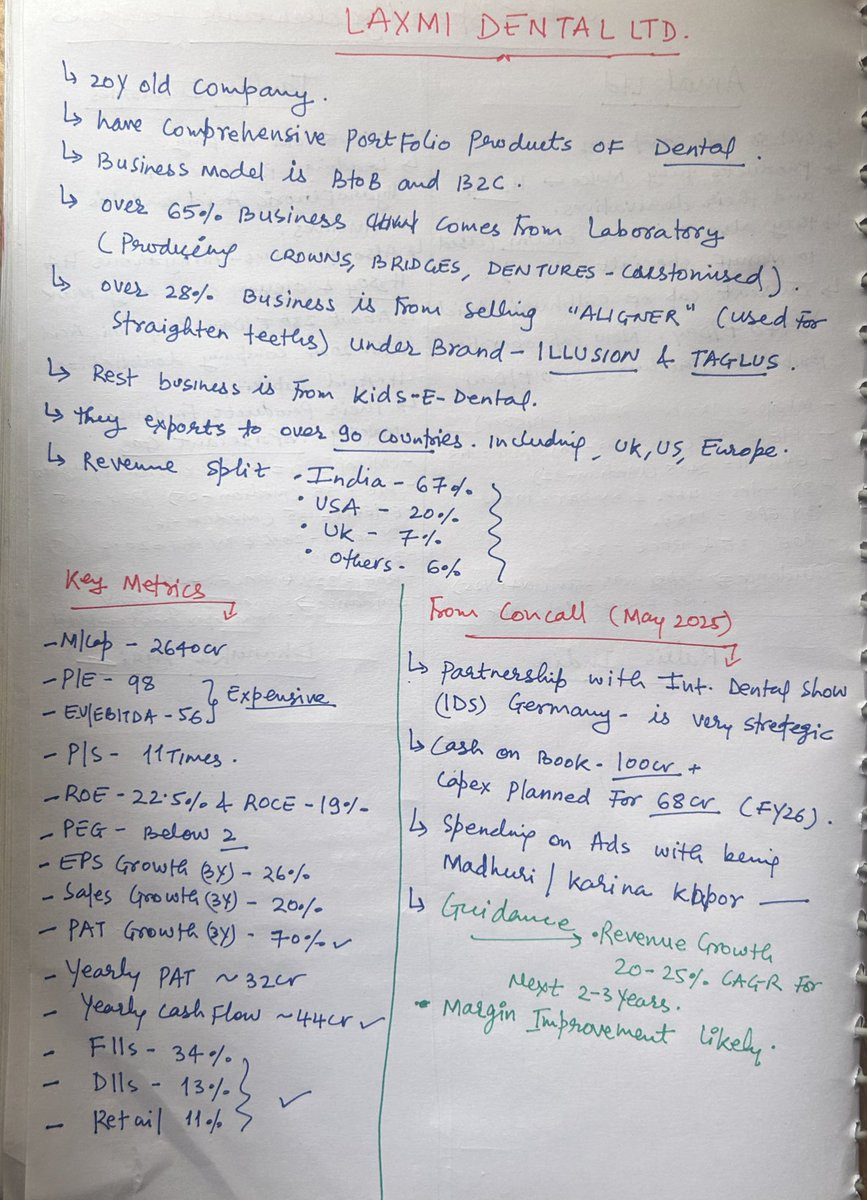 LAXMI DENTAL LTD.
↳ 20Y old company.
↳ have comprehensive Portfolio Products of Dental.
↳ Business Model is BtoB and B2C.
↳ over 65% Business comes from Laboratory
(Producing CROWNS, BRIDGES, DENTURES - Custonised).
↳ over 28% Business is from selling "ALIGNER" (used for
straighten teeths) under Brand - ILLUSION & TAGLUS.
↳ Rest business is from Kids-E-Dental.
↳ they exports to over 90 countries. including, UK, US, Europe.
↳ Revenue split • India - 67%
• USA - 20%
• UK - 7%
• others - 6%
Key Metrics
- M/Cap - 2640cr
- P/E - 98
- EV/EBITDA - 56
Expensive
- P/S - 11 Times.
- ROE - 22.5% & ROCE - 19%
- PEG - Below 2
- EPS Growth (3Y) - 26%
- Sales Growth (3Y) - 20%
- PAT Growth (3Y) - 70% ✓
- Yearly PAT ~ 32cr
- Yearly cash flow ~44cr ✓
- FIIs - 34%
- DIIs - 13% ✓
- Retail 11%
From Concall (May 2025)
↳ Partnership with Int. Dental Show
(IDS) Germany - is very stretegic
↳ Cash on Book - 100cr +
Capex Planned For 68cr (FY26).
↳ Spending on Ads with being
Madhuri / Karina Kapor —
↳ Guidance → • Revenue Growth
20-25% CAGR For
Next 2-3 years.
• Margin Improvement likely.